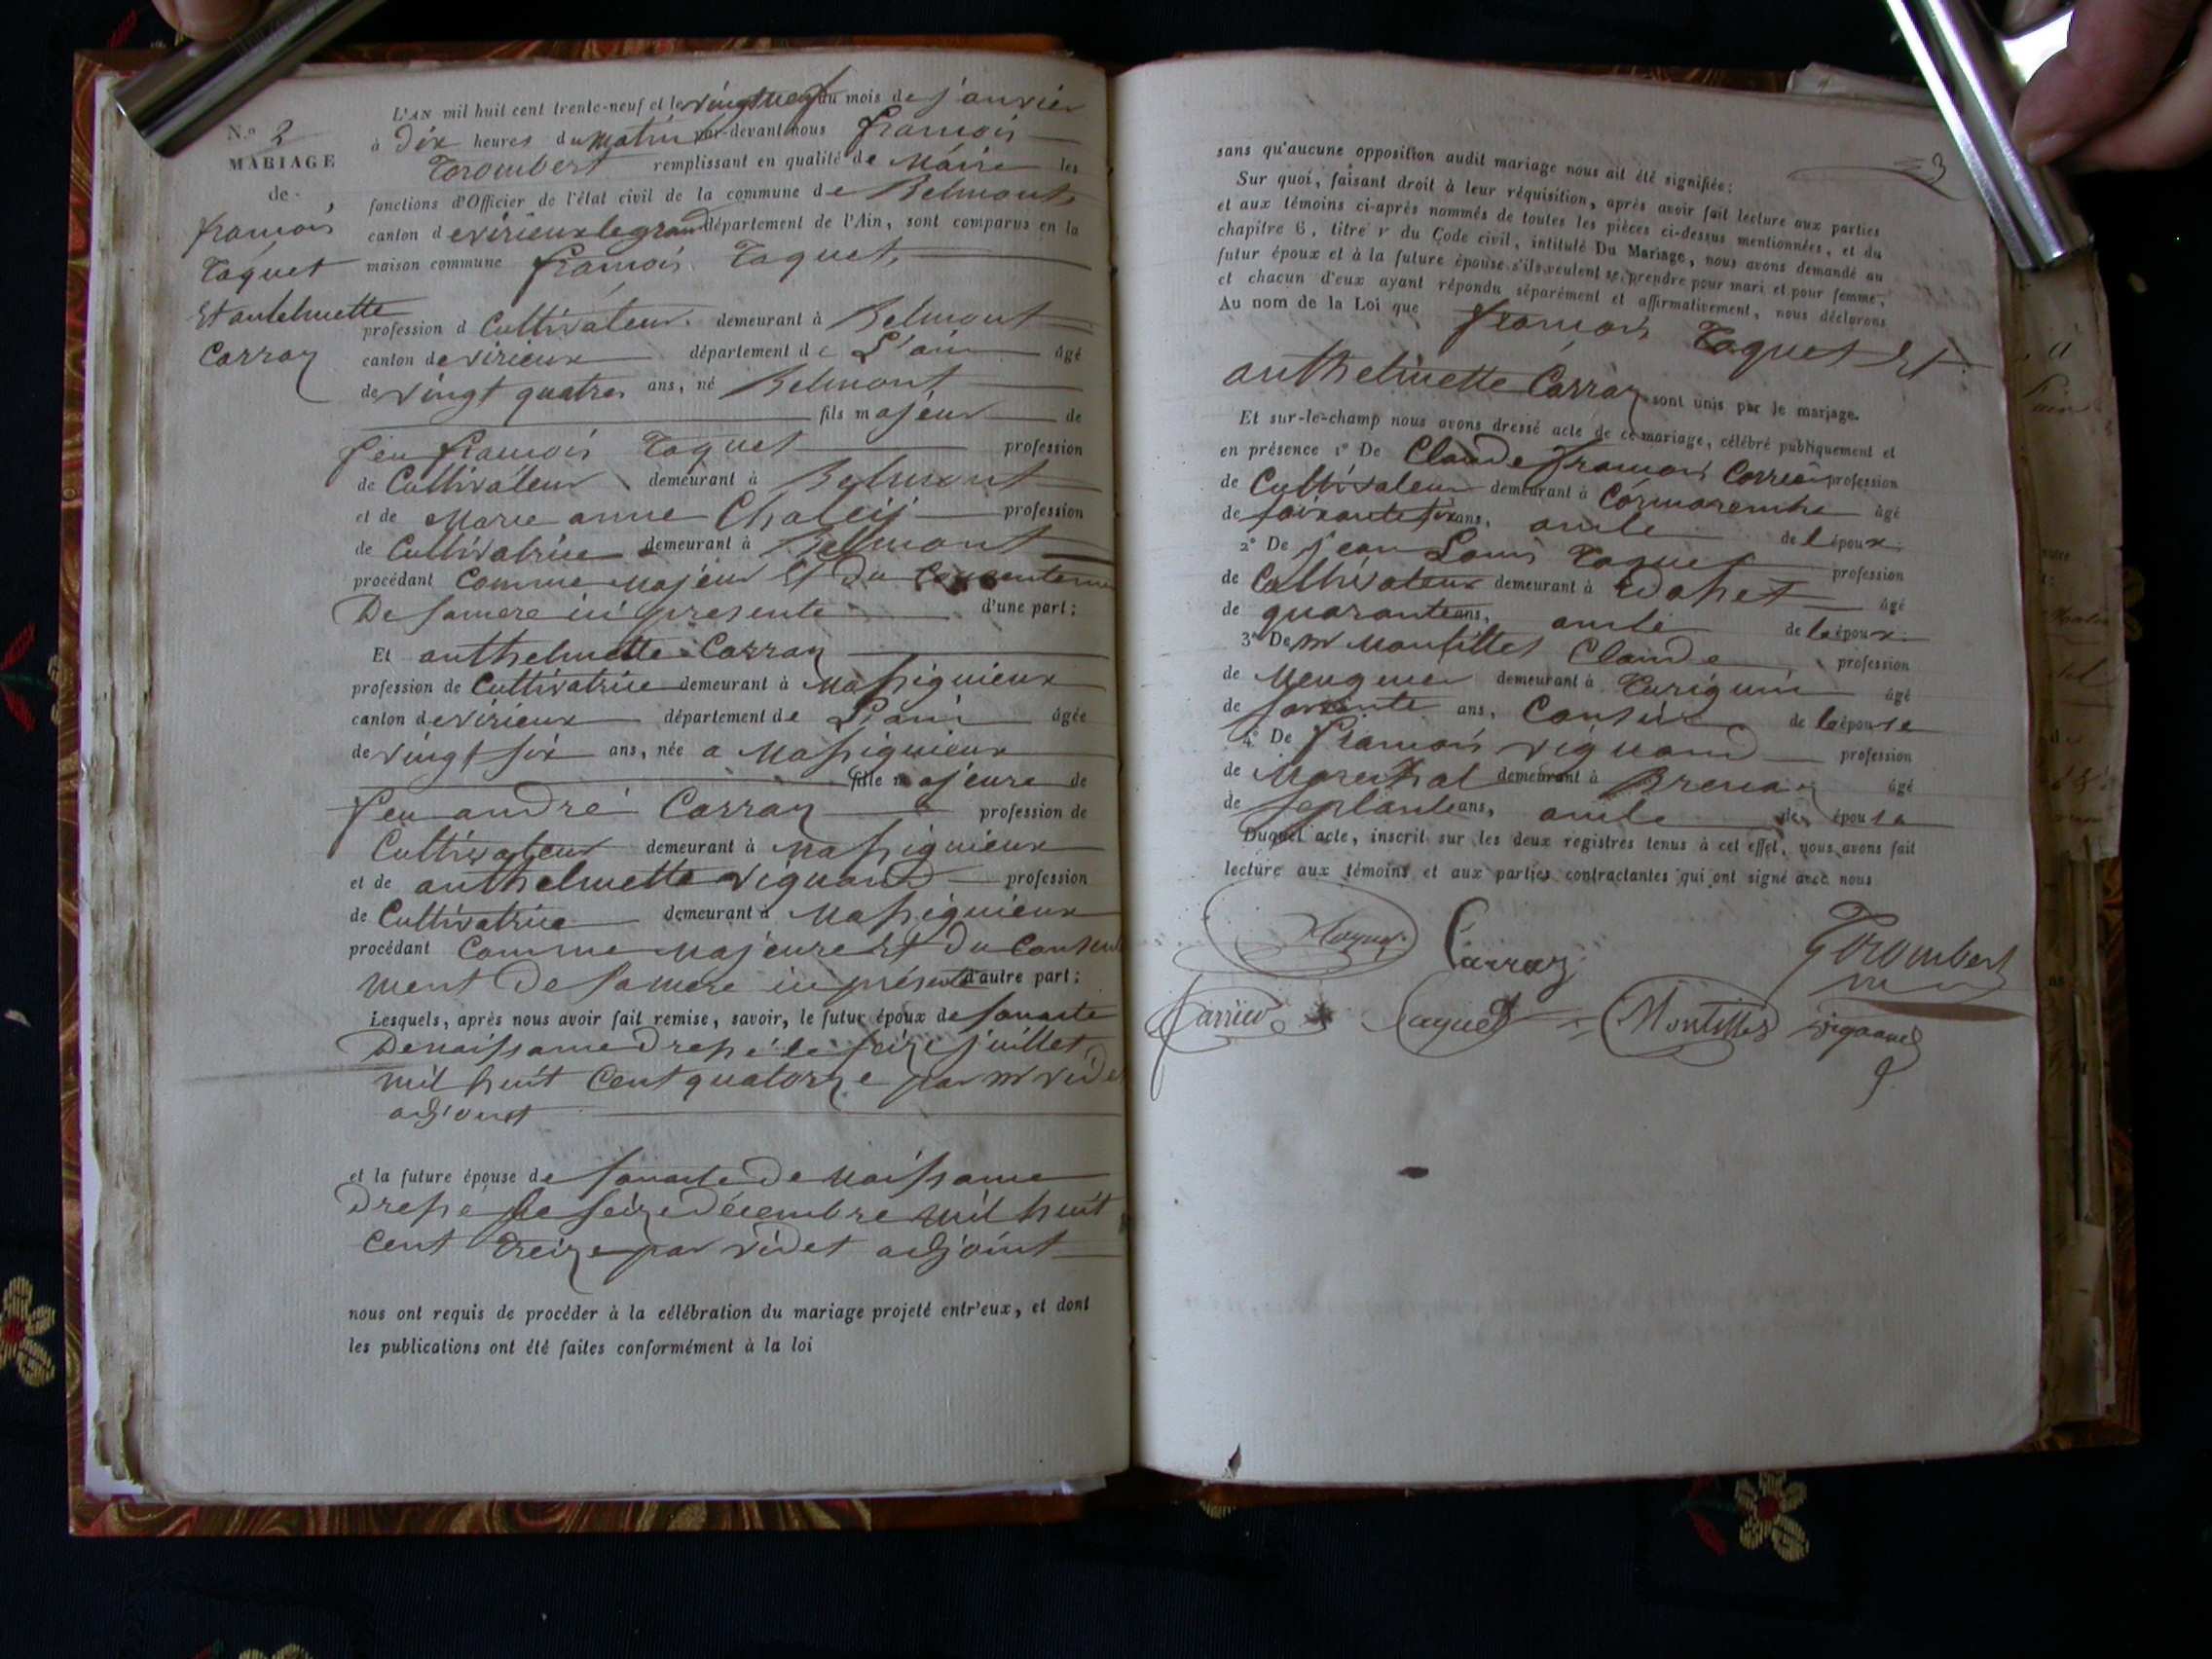 N.o 2
MARIAGE
de
françois
Taquet
Et anthelmette
Carraz
L'AN mil huit cent trente-neuf et le vingt neuf du mois de janvier
à Dix heures du matin par-devant nous françois
Trombert remplissant en qualité de Maire les
fonctions d'Officier de l'état civil de la commune de Belmont
canton de virieux le grand département de l'Ain, sont comparus en la
maison commune françois Taquet,
profession d Cultivateur demeurant à Belmont
canton de virieux département de L'ain âgé
de vingt quatre ans, né Belmont
fils majeur de
feu françois Taquet profession
de Cultivateur demeurant à Belmont
et de Marie anne profession
de Cultivatrice demeurant à Belmont
procédant Comme Majeur Et du
De sa mere ici presente d'une part;
Et anthelmette Carraz
profession de Cultivatrice demeurant à Massignieux
canton de virieux département de L'ain âgée
de vingt six ans, née a Massignieux
fille majeure de
feu andré Carraz profession de
Cultivateur demeurant à Massignieux
et de anthelmette vignand profession
de Cultivatrice demeurant à Massignieux
procédant Comme Majeure Et du Consente
ment De sa mère ici présente d'autre part;
Lesquels, après nous avoir fait remise, savoir, le futur époux de son acte
De naissance Dressé le seize juillet
mil huit Cent quatorze par mr videt
adjoint
et la future épouse de son acte De Naissance
Dressé le seize Décembre mil huit
Cent Treize par videt adjoint
nous ont requis de procéder à la célébration du mariage projeté entr'eux, et dont
les publications ont été faites conformément à la loi
3
sans qu'aucune opposition audit mariage nous ait été signifiée;
Sur quoi, faisant droit à leur réquisition, après avoir fait lecture aux parties
et aux témoins ci-après nommés de toutes les pièces ci-dessus mentionnées, et du
chapitre 6, titre v du Code civil, intitulé Du Mariage, nous avons demandé au
futur époux et à la future épouse s'ils veulent se prendre pour mari et pour femme,
et chacun d'eux ayant répondu séparément et affirmativement, nous déclarons
Au nom de la Loi que françois Taquet Et
anthelmette Carraz sont unis par le mariage.
Et sur-le-champ nous avons dressé acte de ce mariage, célébré publiquement et
en présence 1° De Claude françois profession
de Cultivateur demeurant à Cormaranche âgé
de soixante six ans, ami de l'époux
2° De jean Louis Taquet profession
de Cultivateur demeurant à âgé
de quarante ans, ami de l'époux
3° De mr Montillet Claude profession
de Meugnier demeurant à âgé
de ans, Cousin de l'épouse
4° De françois vignand profession
de Marechal demeurant à Brenaz âgé
de septante ans, ami de épouse
Duquel acte, inscrit sur les deux registres tenus à cet effet, nous avons fait
lecture aux témoins et aux parties contractantes qui ont signé avec nous
Taquet Carraz Trombert
Taquet Montillet vignand